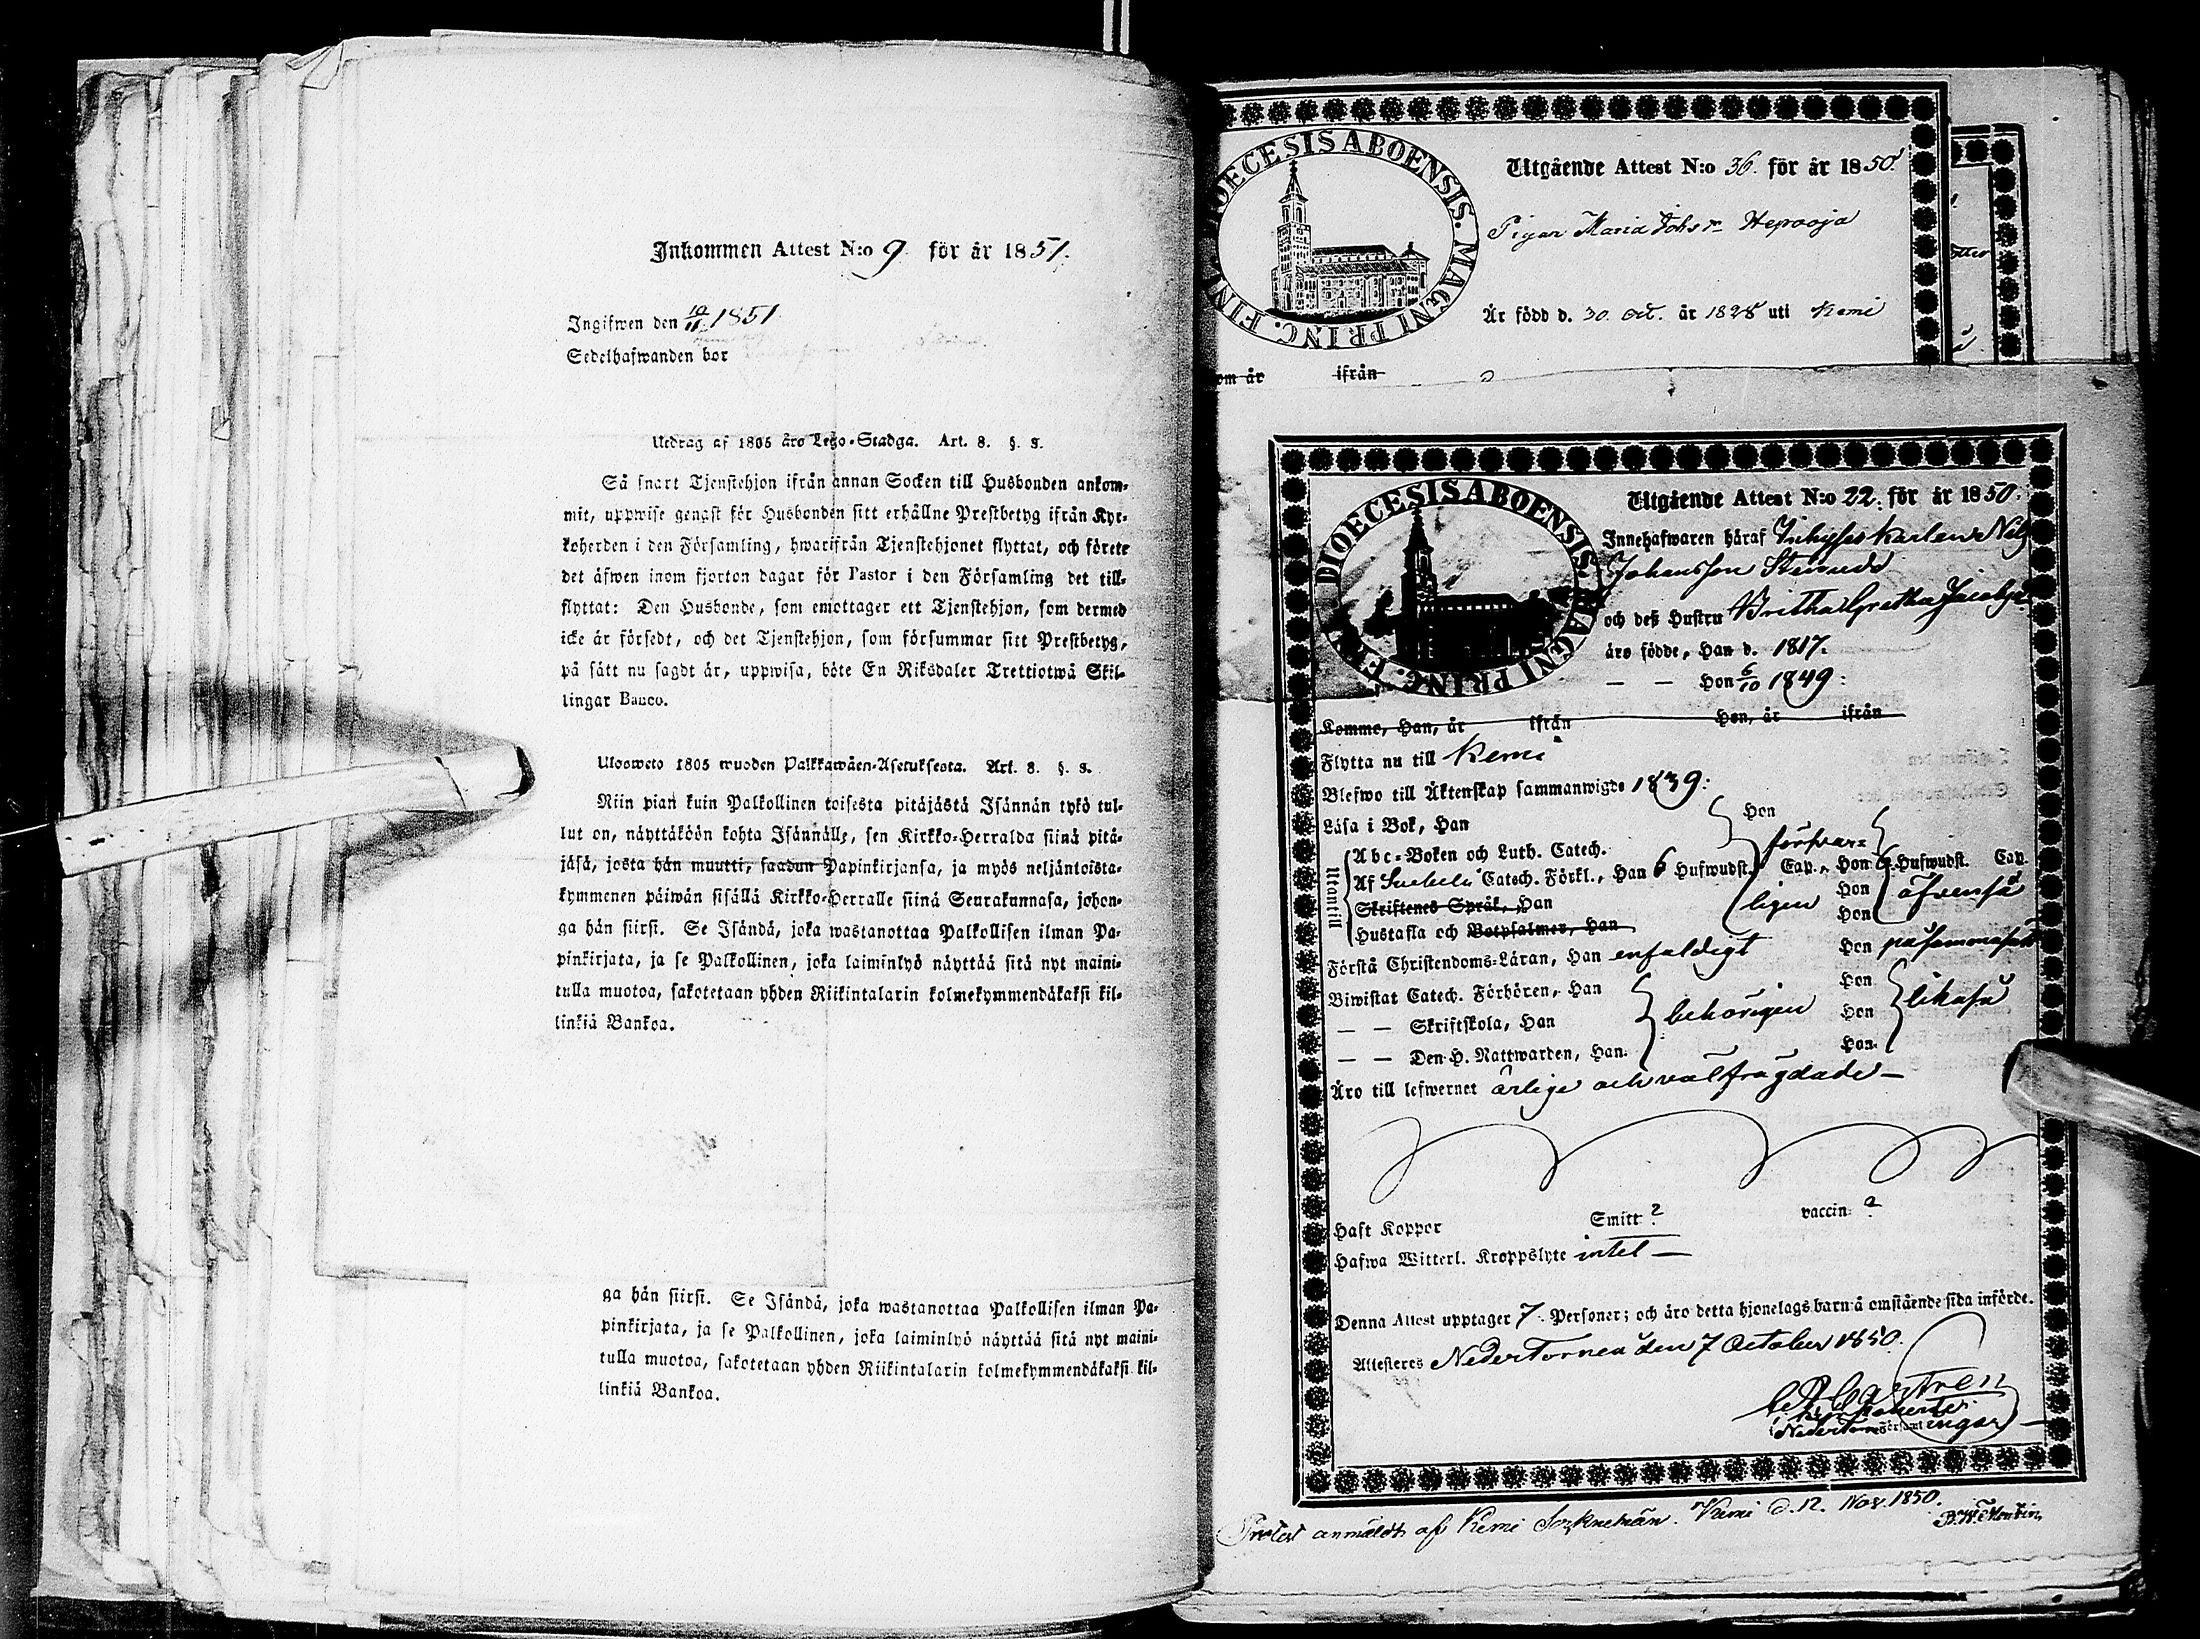 Inkommen Attest N:o 9 för år 1851.
Ingifwen den 10/11 1851
Sedelhafwanden bor
Utdrag af 1805 års Lego-Stadga. Art. 8. §. 8.
Så snart Tjenstehjon ifrån annan Socken till Husbonden ankom-
mit, uppwise genast för Husbonden sitt erhållne Prestbetyg ifrån Kyr-
koherden i den Församling, hwarifrån Tjenstehjonet flyttat, och förete
det äfwen inom fjorton dagar för Pastor i den Församling det till-
flyttat: Den Husbonde, som emottager ett Tjenstehjon, som dermed
icke är försedt, och det Tjenstehjon, som försummar sitt Prestbetyg,
på sätt nu sagdt är, uppwisa, böte En Riksdaler Trettiotwå Skil-
lingar Banco.
Ulosweto 1805 wuoden Palkkawäen-Asetuksesta. Art. 8. §. 8.
Niin pian kuin Palkollinen toisesta pitäjästä Isännän tykö tul-
lut on, näyttäköön kohta Isännälle, sen Kirkko-Herralda siinä pitä-
jäsä, josta hän muutti, saadun Papinkirjansa, ja myös neljäntoista-
kymmenen päiwän sisällä Kirkko-Herralle siinä Seurakunnasa, johon-
ga hän siirsi. Se Isändä, joka wastanottaa Palkollisen ilman Pa-
pinkirjata, ja se Palkollinen, joka laiminlyö näyttää sitä nyt maini-
tulla muotoa, sakotetaan yhden Riikintalarin kolmekymmendäkaksi kil-
linkiä Bankoa.
ga hän siirsi. Se Isändä, joka wastanottaa Palkollisen ilman Pa-
pinkirjata, ja se Palkollinen, joka laiminlyö näyttää sitä nyt maini-
tulla muotoa, sakotetaan yhden Riikintalarin kolmekymmendäkaksi kil-
linkiä Bankoa.
DIOECESIS ABOENSIS. MAGNI PRINC. FINL
Utgående Attest N:o 36. för år 1850.
Pigan Maria Johsr Heprooja
Är född d. 30. Oct. år 1828 uti Kemi
om år ifrån
DIOECESIS ABOENSIS. MAGNI PRINC. FINL
Utgående Attest N:o 22. för år 1850.
Innehafwaren häraf Inhyses Karlen Nils
Johansson Stenudd
och deß Hustru Britha Gretha Jacobsd
äro födde, Han d. 1817.
— — Hon 6/10 1849:
Komne, Han, år ifrån Hon, år ifrån
Flytta nu till Kemi
Blefwo till Äktenskap sammanwigde 1839:
Läsa i Bok, Han Hon
Utantill
Abc-Boken och Luth. Catech. försvar=
Af Svebelii Catech. Förkl., Han 6 Hufwudst. Cap., Hon 6 Hufwudst. Cap.
Skriftenes Språk, Han ligen Hon äfvenså
Hustafla och Botpsalmer, Han Hon
Förstå Christendoms-Läran, Han enfaldigt Hon på samma sätt
Biwistat Catech. Förhören, Han Hon
— — Skriftskola, Han behörigen Hon likaså
— — Den H. Nattwarden, Han Hon
Äro till lefwernet ärlige och välfrägdade —
Haft Koppor Smitt ? vaccin: ?
Hafwa Witterl. Kroppslyte intet —
Denna Attest upptager 7 Personer; och äro detta hjonelags barn å omstående sida införde.
Attesteres Neder Torneå den 7 October 1850.
Castren
Kyrkoherde i
Neder Torneå Församlingar —
Protest anmäldt af Kemi Socknemän. Kemi d. 12. Nov. 1850.